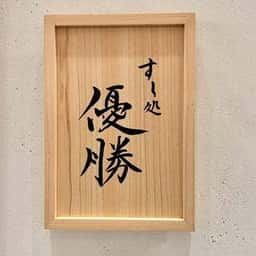 すし処
優勝